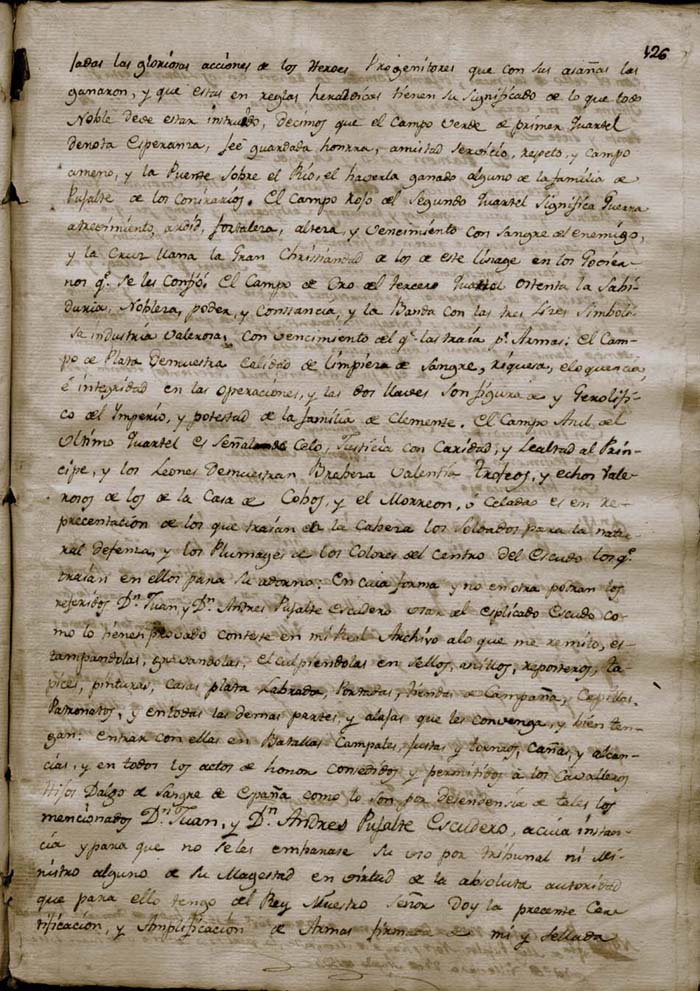 126
sadas las gloriosas acciones de los Heroes Progenitores que con sus asañas las
ganaron, y que estas en reglas heraldicas tienen su significado de lo que todo
Noble deve estar intruido, decimos que el Campo verde de primer Quartel
denota Esperanza, feé guardada honrra, amistad servicio, respeto, y campo
ameno, y la Puente sobre el Rio, el haverla ganado alguno de la familia de
Pujalte de los Contrarios. El Campo Rojo del Segundo Quartel Significa Guerra
atrevimiento, ardid, fortaleza, alteza, y Vencimiento con sangre del enemigo,
y la Cruz llana la Gran Christiandad de los de este linage en los Govier-
nos qe. se les confió; El Campo de Oro del tercero Quartel ostenta la Sabi-
duria, Nobleza, poder, y Constancia, y la Banda con las tres Lises Simboli-
sa industria valerosa, con vencimiento del qe. las traia pr. Armas: el Cam-
po de Plata Demuestra Calidad de limpieza de Sangre, riquesa, eloquencia,
é integridad en las operaciones, y las dos llaves son figura de y Gerolifi-
co del Imperio, y potestad de la familia de Clemente. El Campo Azul, del
Ultimo Quartel es Señal de Celo, Justicia con Caridad, y Lealtad al Prin-
cipe, y los Leones Demuestran Brabeza Valentia trofeos, y echos Vale-
rosos de los de la Casa de Cobos, y el Morreon, ó Celada es en re-
precentacion de los que traian en la Cabeza los Soldados para la natu-
ral defenza, y los Plumages de los Colores del centro del Escudo los qe.
traian en ellos para su adorno: En cuia forma y no en otra podran los
referidos Dn. Juan, y Dn. Andres Pujalte Escudero usar del esplicado Escudo co-
mo lo tienen provado conteste en mi Real Archivo a lo que me remito, es-
tampandolas, gravandolas, esculpiendolas en sellos, anillos, reposteros, ta-
pices, pinturas, Casas, plata labrada, Portadas, tiendas de Campaña, Capillas,
Patronatos, y en todas las demas partes, y alajas que les convenga, y bien ten-
gan: entrar con ellas en Batallas Campales, justas y torneos, Cañas, y alcan-
cias, y en todos los actos de honor consedidos y permitidos á los Cavalleros
Hijos Dalgo de Sangre de España como lo son por desendensia de tales los
mencionados Dn. Juan, y Dn. Andres Pujalte Escudero, a cuia instan-
cia y para que no se les embarase su uso por tribunal ni Mi-
nistro alguno de su Magestad en virtud de la absoluta autoridad
que para ello tengo del Rey Nuestro Señor Doy la precente Cer-
tificacion, y Amplificacion de Armas firmada de mi y sellada